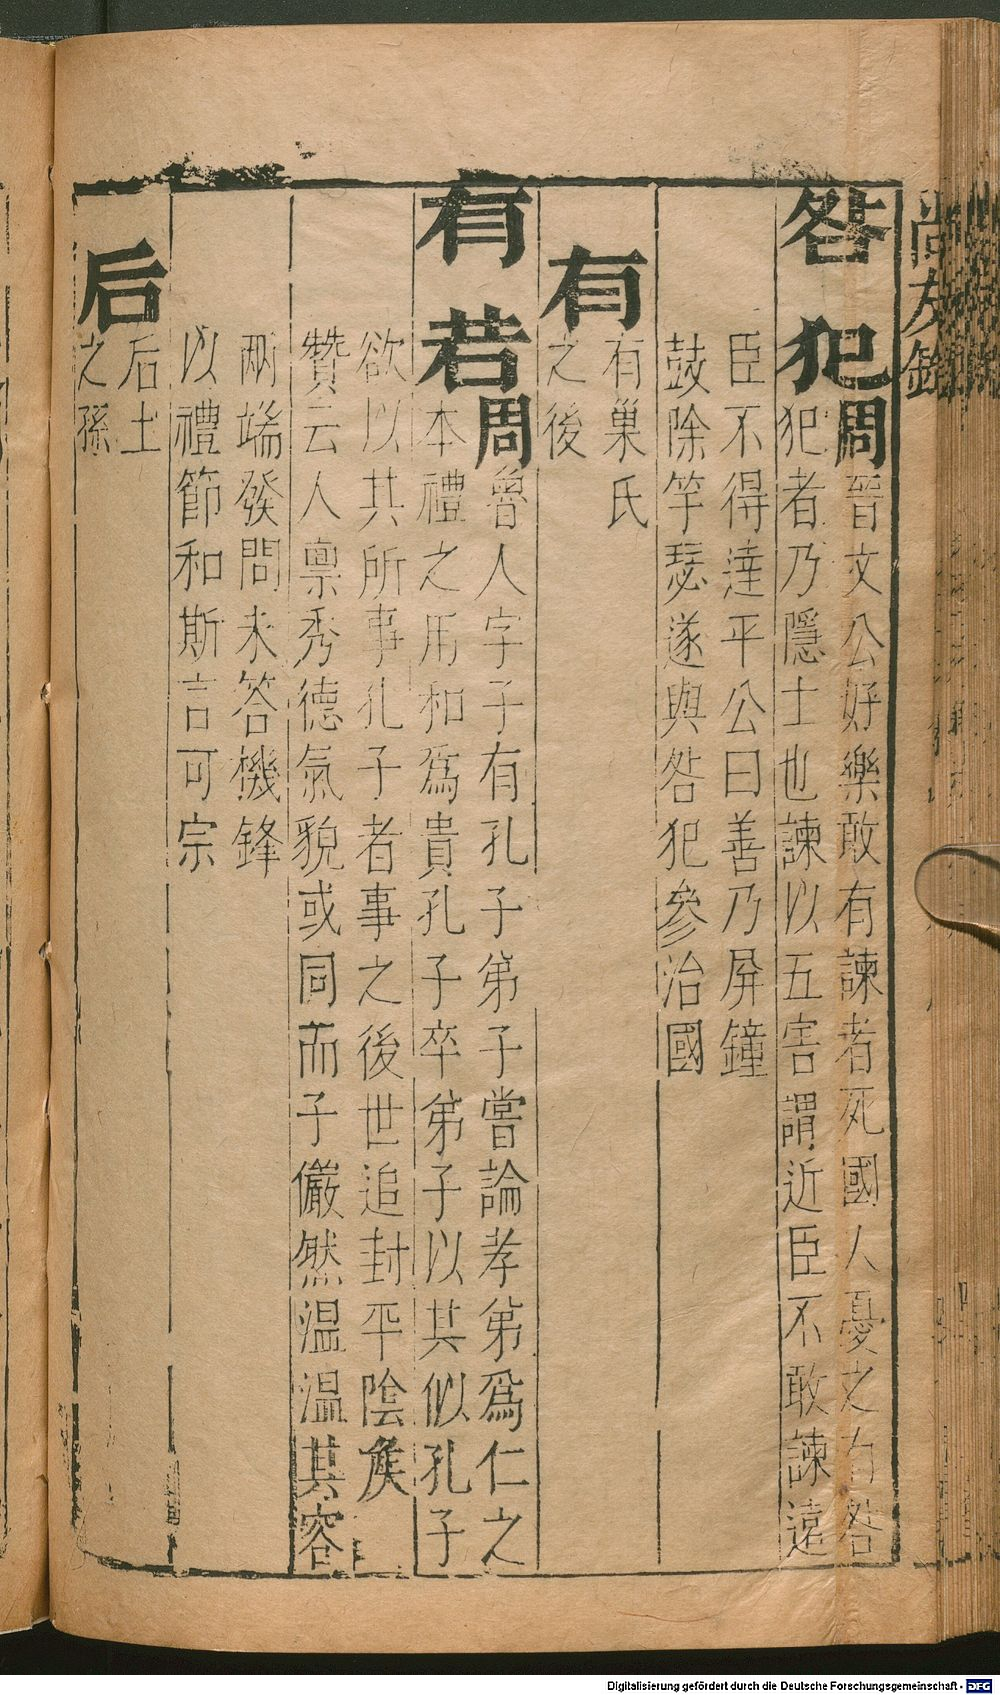 尚友錄
咎犯周晉文公好樂敢有諫者死國人憂之有咎
犯者乃隱士也諫以五害謂近臣不敢諫遠
臣不得達平公曰善乃屏鐘
鼓除竽瑟遂與咎犯參治國
有有巢氏
之後
有若周魯人字子有孔子弟子嘗論孝弟爲仁之
本禮之用和爲貴孔子卒弟子以其似孔子
欲以其所事孔子者事之後世追封平陰矦
贊云人禀秀德氣貌或同而子儼然溫溫其容
兩端發問未答機鋒
以禮節和斯言可宗
后后土
之孫
Digitalisierung gefördert durch die Deutsche Forschungsgemeinschaft - DFG